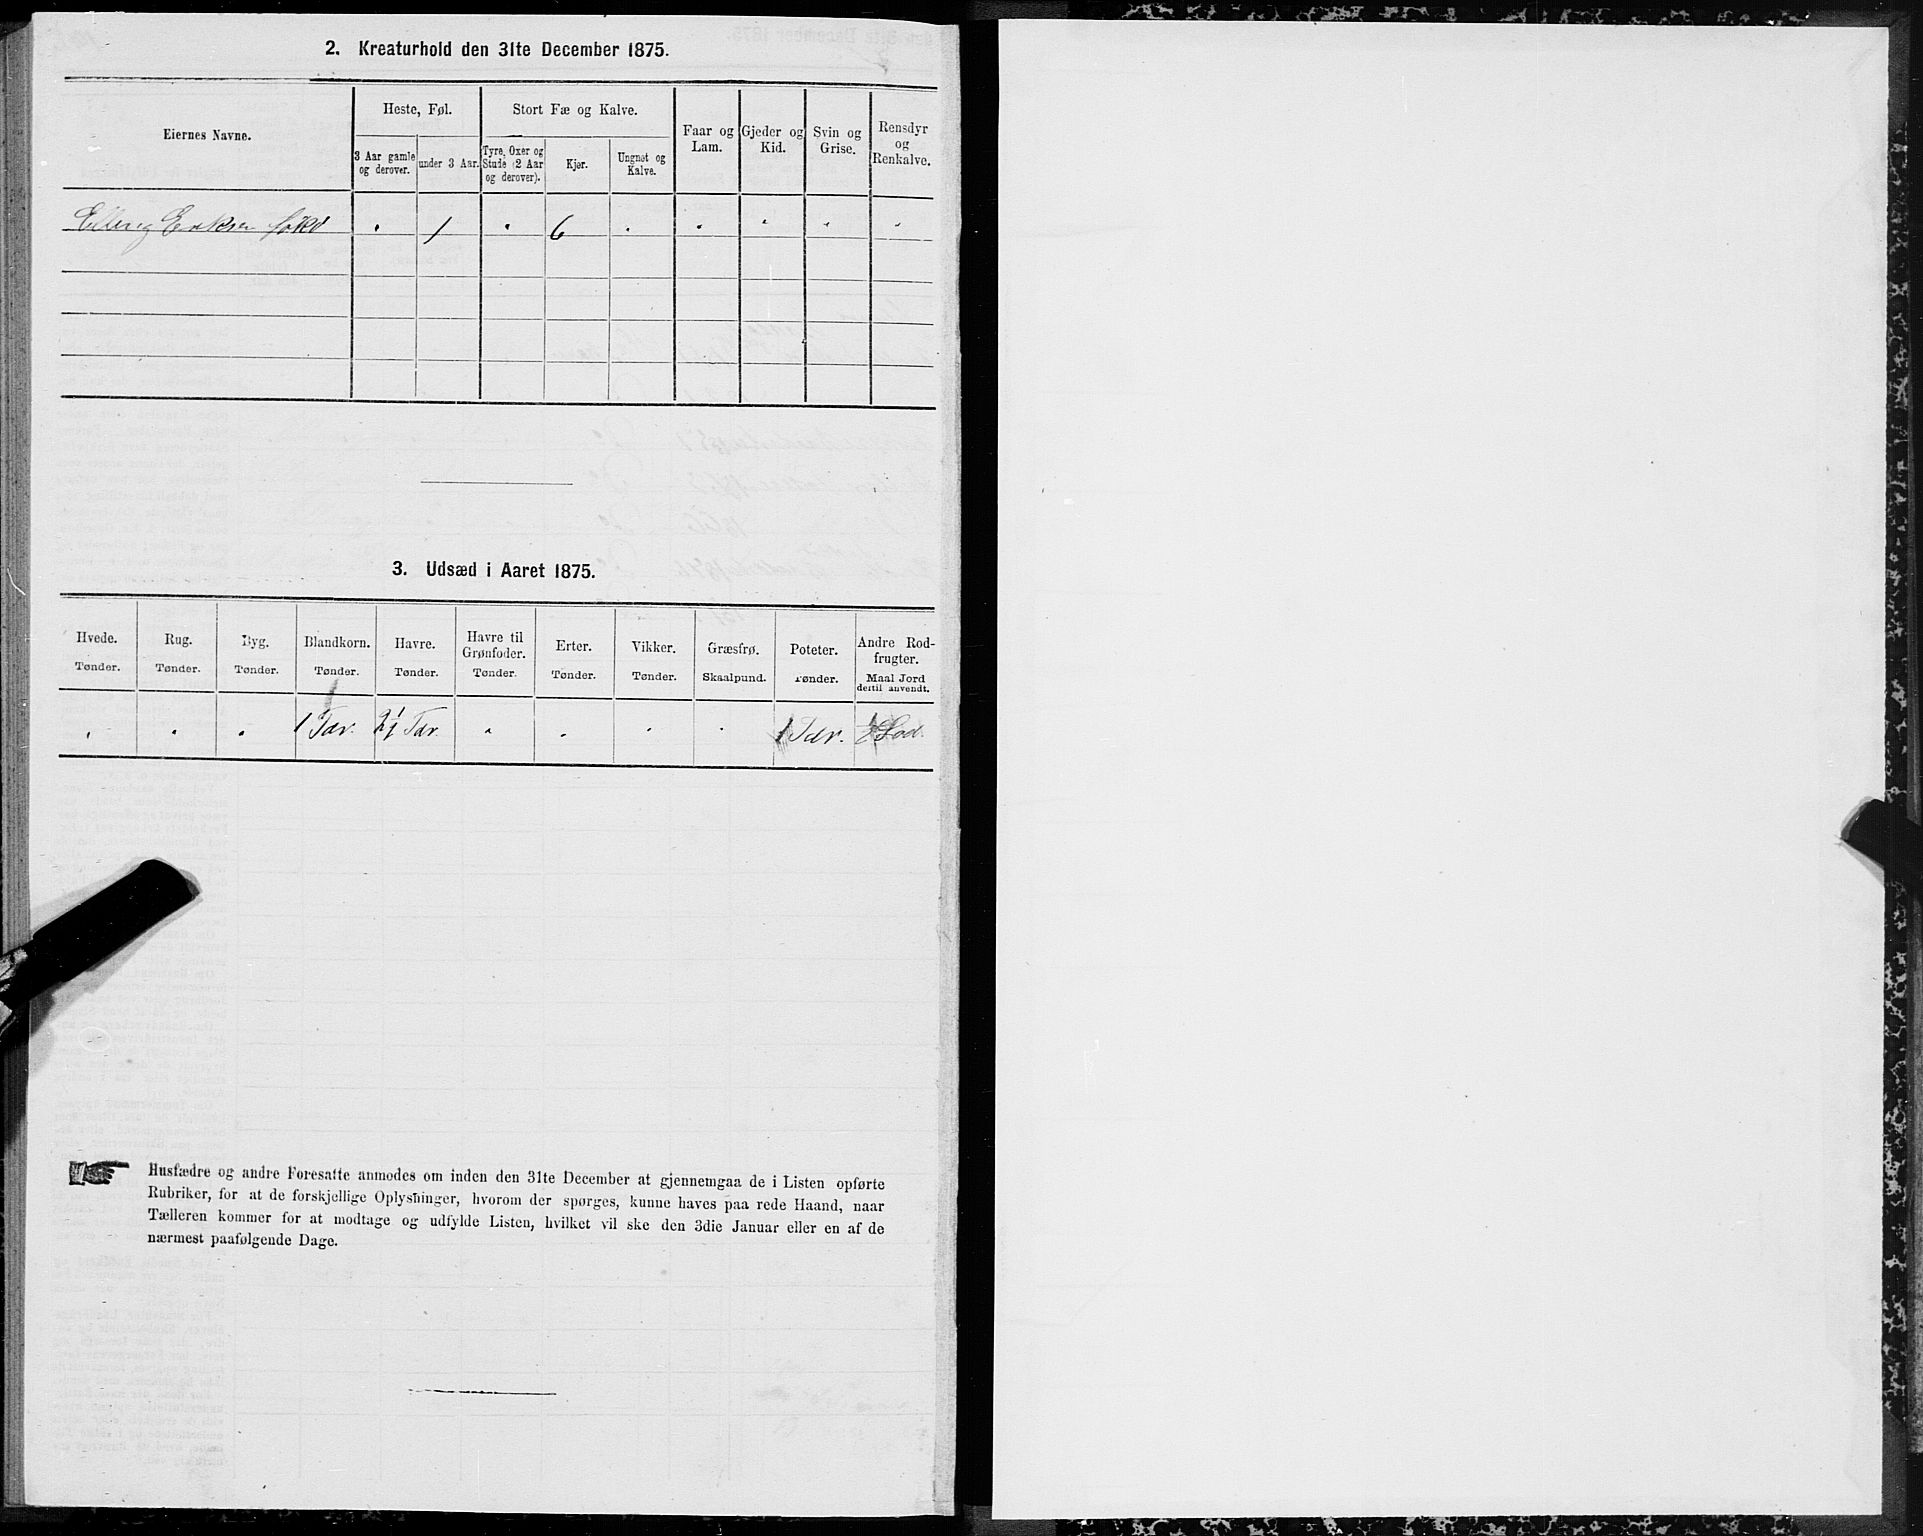 2. Kreaturhold den 31te December 1875.
Eiernes Navne.
Heste, Føl.
Stort Fæ og Kalve.
Faar og Lam.
Gjeder og Kid.
Svin og Grise.
Rensdyr og Renkalve.
3 Aar gamle og derover.
under 3 Aar.
Tyre, Oxer og Stude (2 Aar og derover).
Kjør.
Ungnøt og Kalve.
" 1 " 6 " " " " "
3. Udsæd i Aaret 1875.
Hvede. Rug. Byg. Blandkorn. Havre. Havre til Grønfoder. Erter. Vikker. Græsfrø. Poteter. Andre Rodfrugter.
Tønder. Tønder. Tønder. Tønder. Tønder. Tønder. Tønder. Tønder. Skaalpund. Tønder. Maal Jord dertil anvendt.
" " " 1 Tdr. Tdr. " " " " 1 Tdr.
Husfædre og andre Foresatte anmodes om inden den 31te December at gjennemgaa de i Listen opførte
Rubriker, for at de forskjellige Oplysninger, hvorom der spørges, kunne haves paa rede Haand, naar
Tælleren kommer for at modtage og udfylde Listen, hvilket vil ske den 3die Januar eller en af de
nærmest paafølgende Dage.